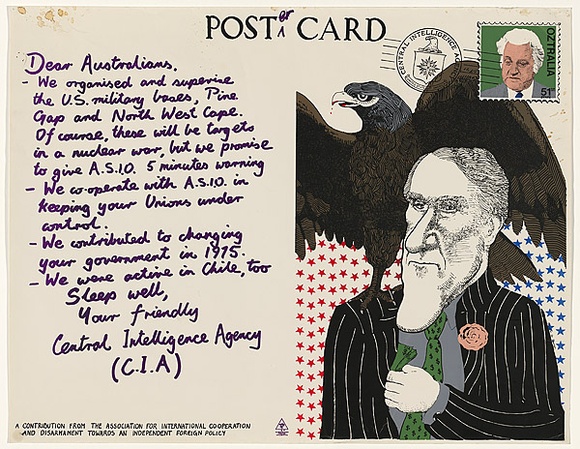 POST er CARD
CENTRAL INTELLIGENCE AG
OZTRALIA
51st
Dear Australians,
- We organised and supervise
the U.S. military bases, Pine
Gap and North West Cape.
Of course, these will be targets
in a nuclear war, but we promise
to give A.S.I.O. 5 minutes warning
- We co-operate with A.S.I.O. in
keeping your Unions under
control.
- We contributed to changing
your government in 1975.
- We were active in Chile, too
Sleep well,
Your friendly
Central Intelligence Agency
(C.I.A)
A CONTRIBUTION FROM THE ASSOCIATION FOR INTERNATIONAL CO-OPERATION
AND DISARMAMENT TOWARDS AN INDEPENDENT FOREIGN POLICY